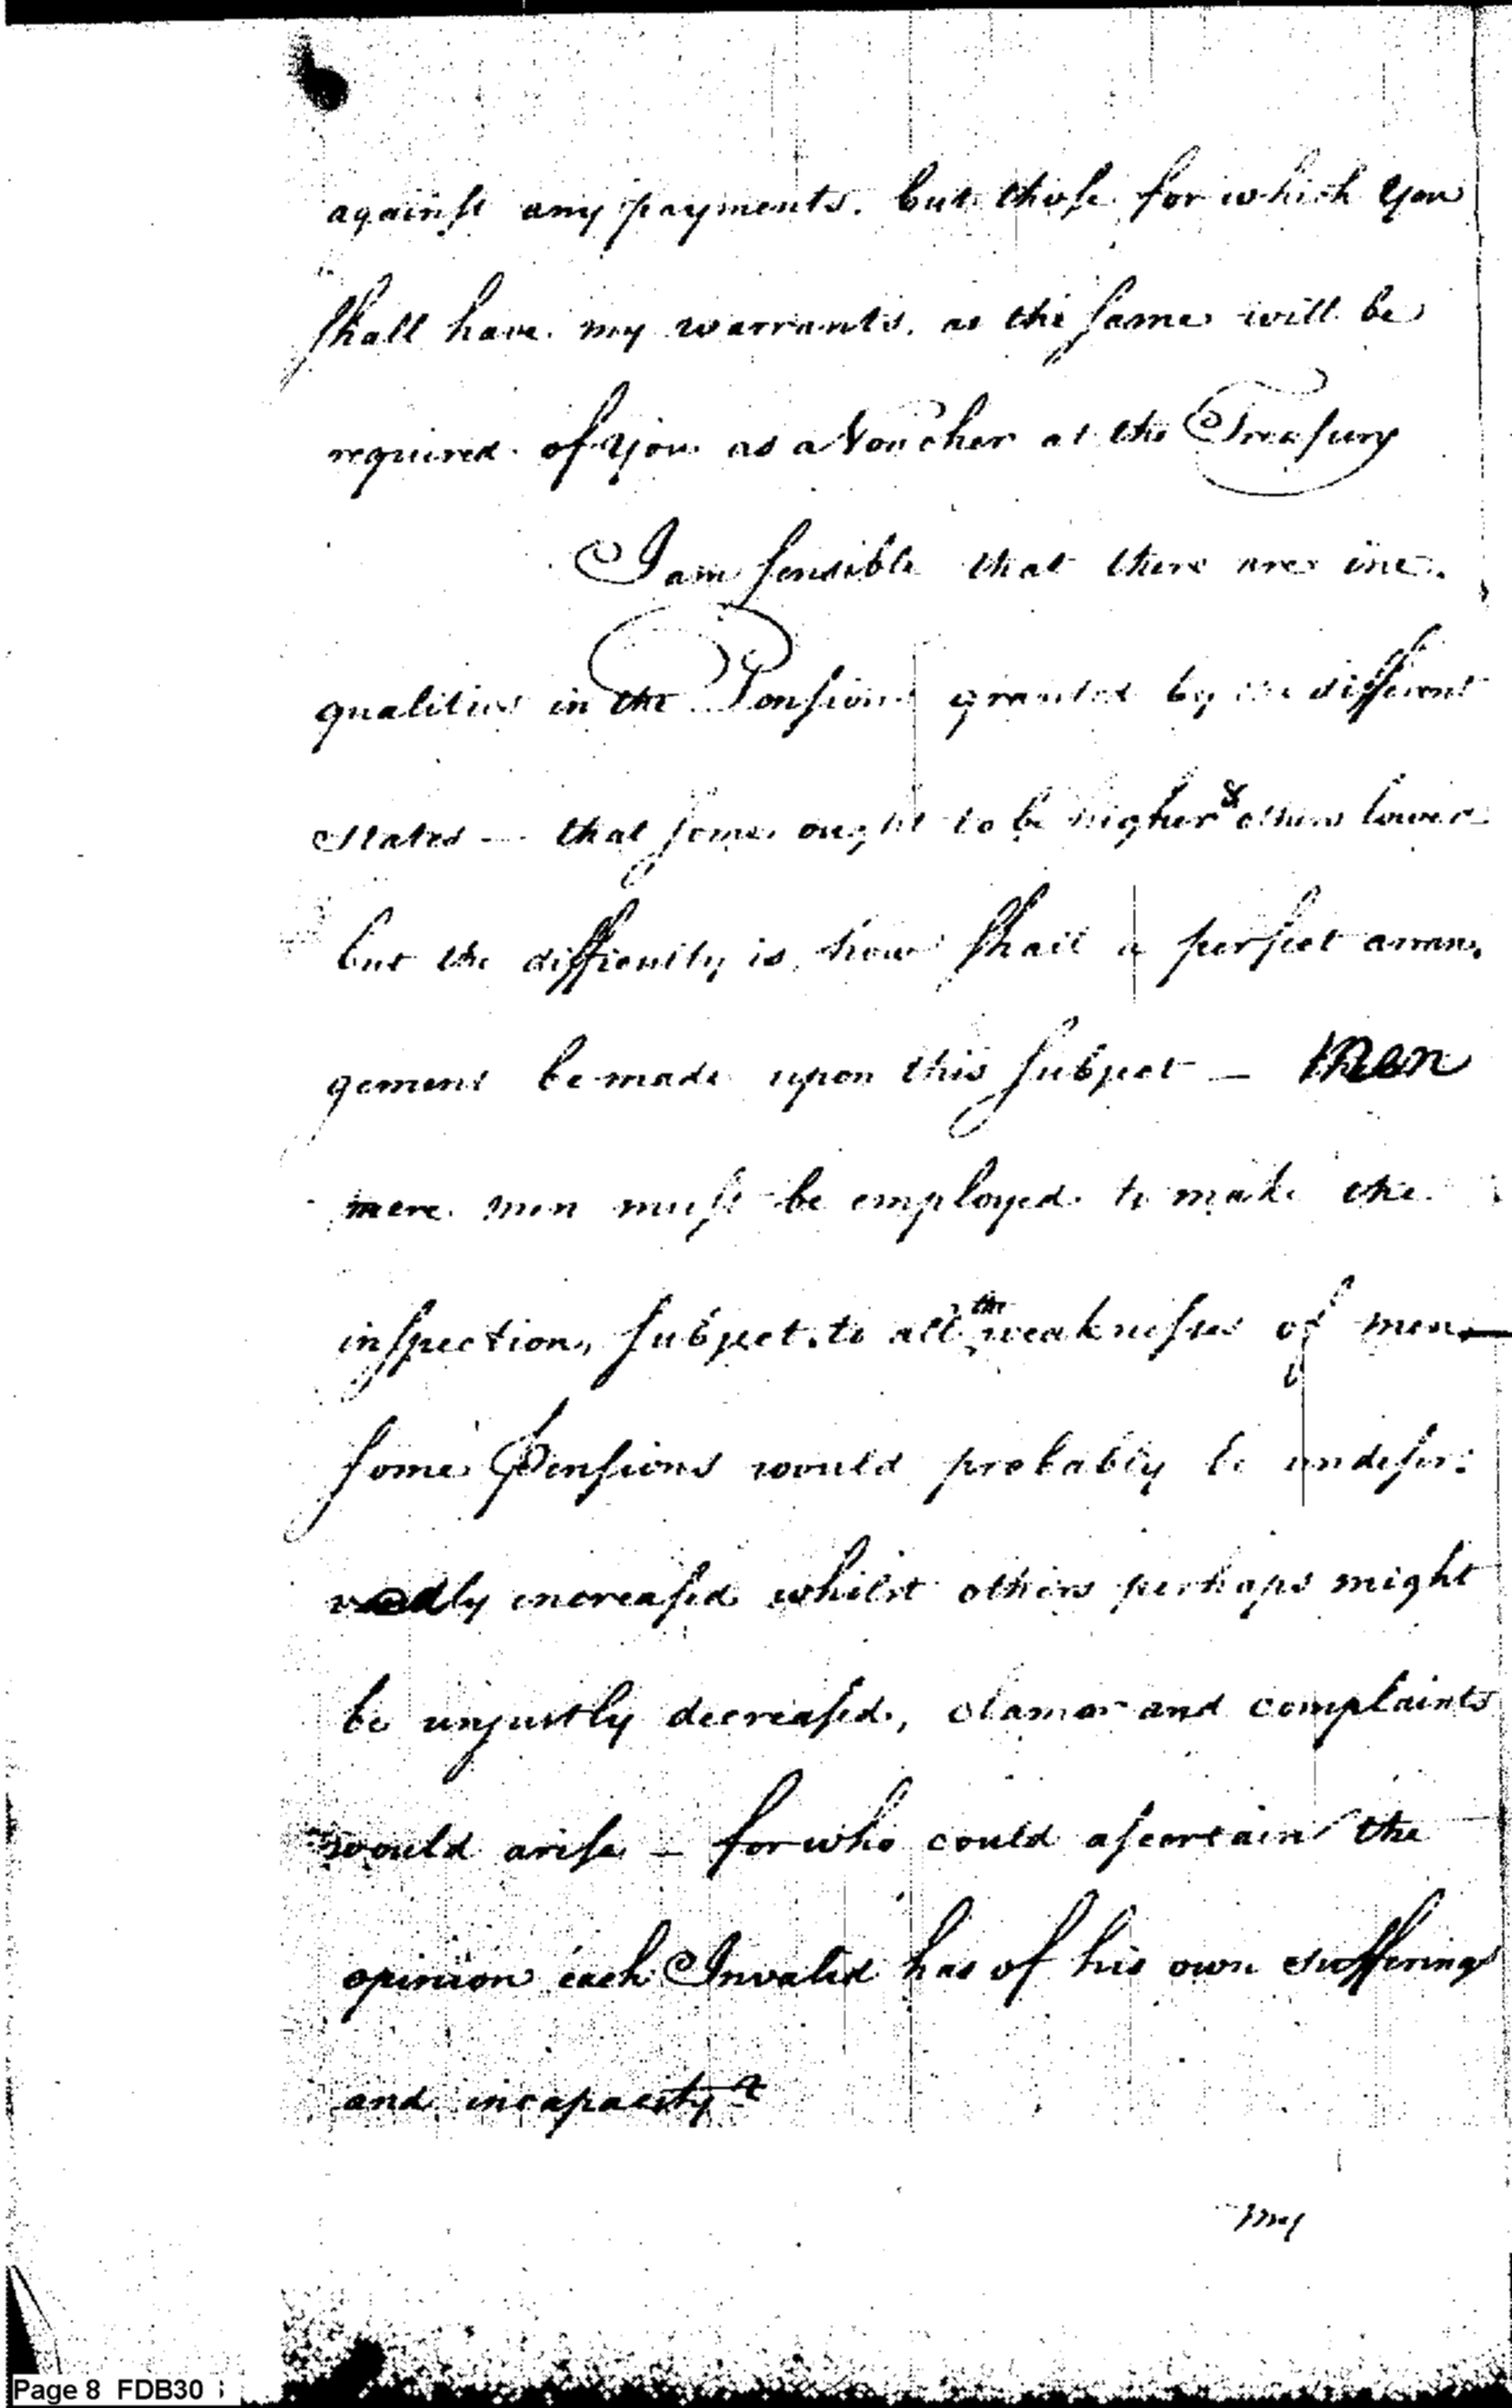 against any payments. but those for which you
shall have my warrants, as the same will be
required of you as a Voucher at the Treasury
I am sensible that there are ine-
qualities in the Pensions granted by the different
States — that some ought to be higher & others lower
but the difficulty is, how shall a perfect arran-
gement be made upon this subject — 
mere men must be employed to make the
inspection, subject to all the weaknesses of men —
some Pensions would probably be undeser-
vedly increased whilst others perhaps might
be unjustly decreased, clamor and complaints
would arise — for who could ascertain the
opinion each Invalid has of his own sufferings
and incapacity?
my
Page 8 FDB30